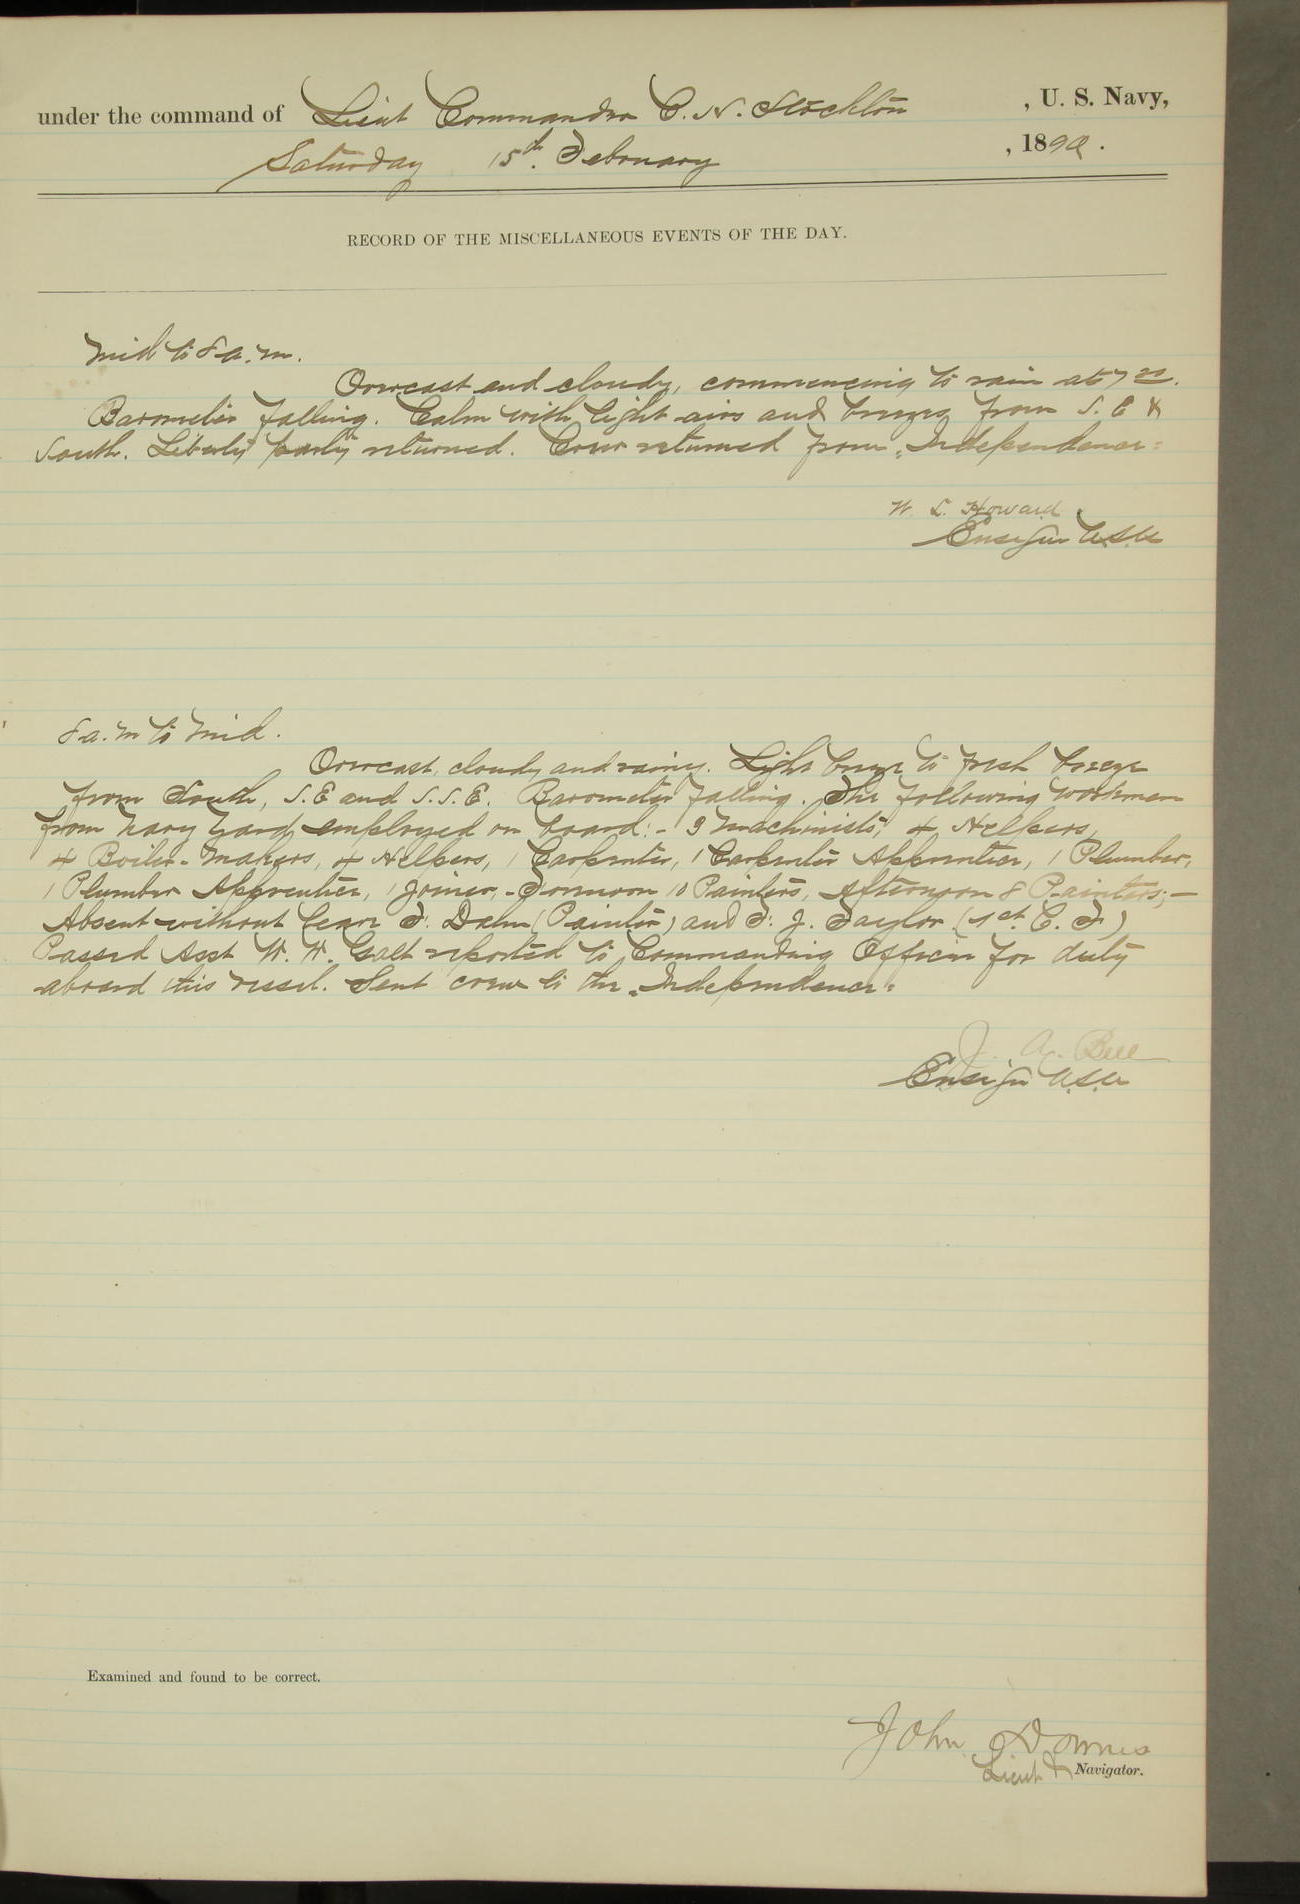 under the command of Lieut Commander C. H. Stockton, U. S. Navy,
Saturday 15th. February, 1890.
RECORD OF THE MISCELLANEOUS EVENTS OF THE DAY.
Mid to 8 a.m.
Overcast and cloudy, commencing to rain at 7
Barometer falling. Calm with light airs and breezes from S. E &
South. Liberty party returned. Crew returned from "Independence"
W. L. Howard
Ensign USN
8 a.m to Mid.
Overcast, cloudy and rainy. Light breeze to fresh breeze
from South, S.E and S.S.E. Barometer falling. The following workmen
from Navy Yard employed on board:- 9 Machinists, 4 Helpers,
4 Boiler-Makers, 4 Helpers, 1 Carpenter, 1 Carpenter Apprentice, 1 Plumber,
1 Plumber Apprentice, 1 Joiner,- Forenoon 10 Painters, Afternoon 8 Painters;-
Absent without leave F. Dahn (Painter) and F. J. Taylor (1st. C. F.)
Passed Asst W. W. Galt reported to Commanding Officer for duty
aboard this vessel. Sent crew to the "Independence"
J. A. Bell
Ensign USN
Examined and found to be correct.
John Downes
Lieut & Navigator.